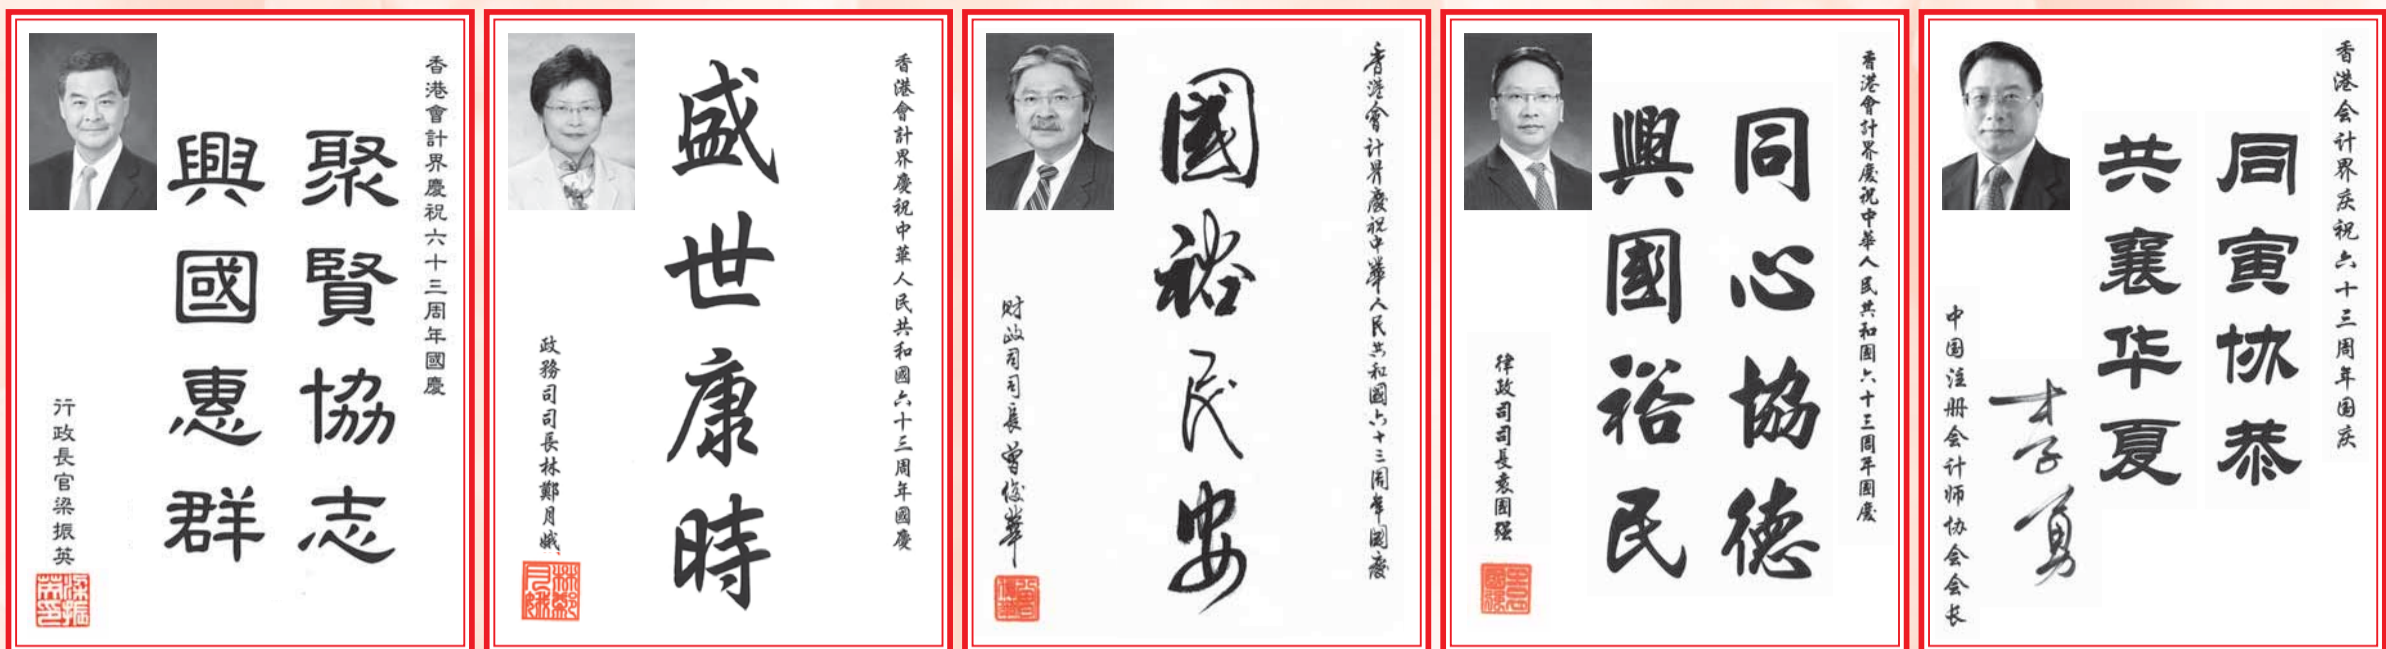 香港會計界慶祝六十三周年國慶
聚賢協志
興國惠群
行政長官梁振英
梁振英印
香港會計界慶祝中華人民共和國六十三周年國慶
盛世康時
政務司司長林鄭月娥
林鄭月娥
香港會計界慶祝中華人民共和國六十三周年國慶
國裕民安
财政司司長曾俊華
香港會計界慶祝中華人民共和國六十三周年國慶
同心協德
興國裕民
律政司司長袁國强
香港会计界庆祝六十三周年国庆
同寅协恭
共襄华夏
中国注册会计师协会会长
李勇